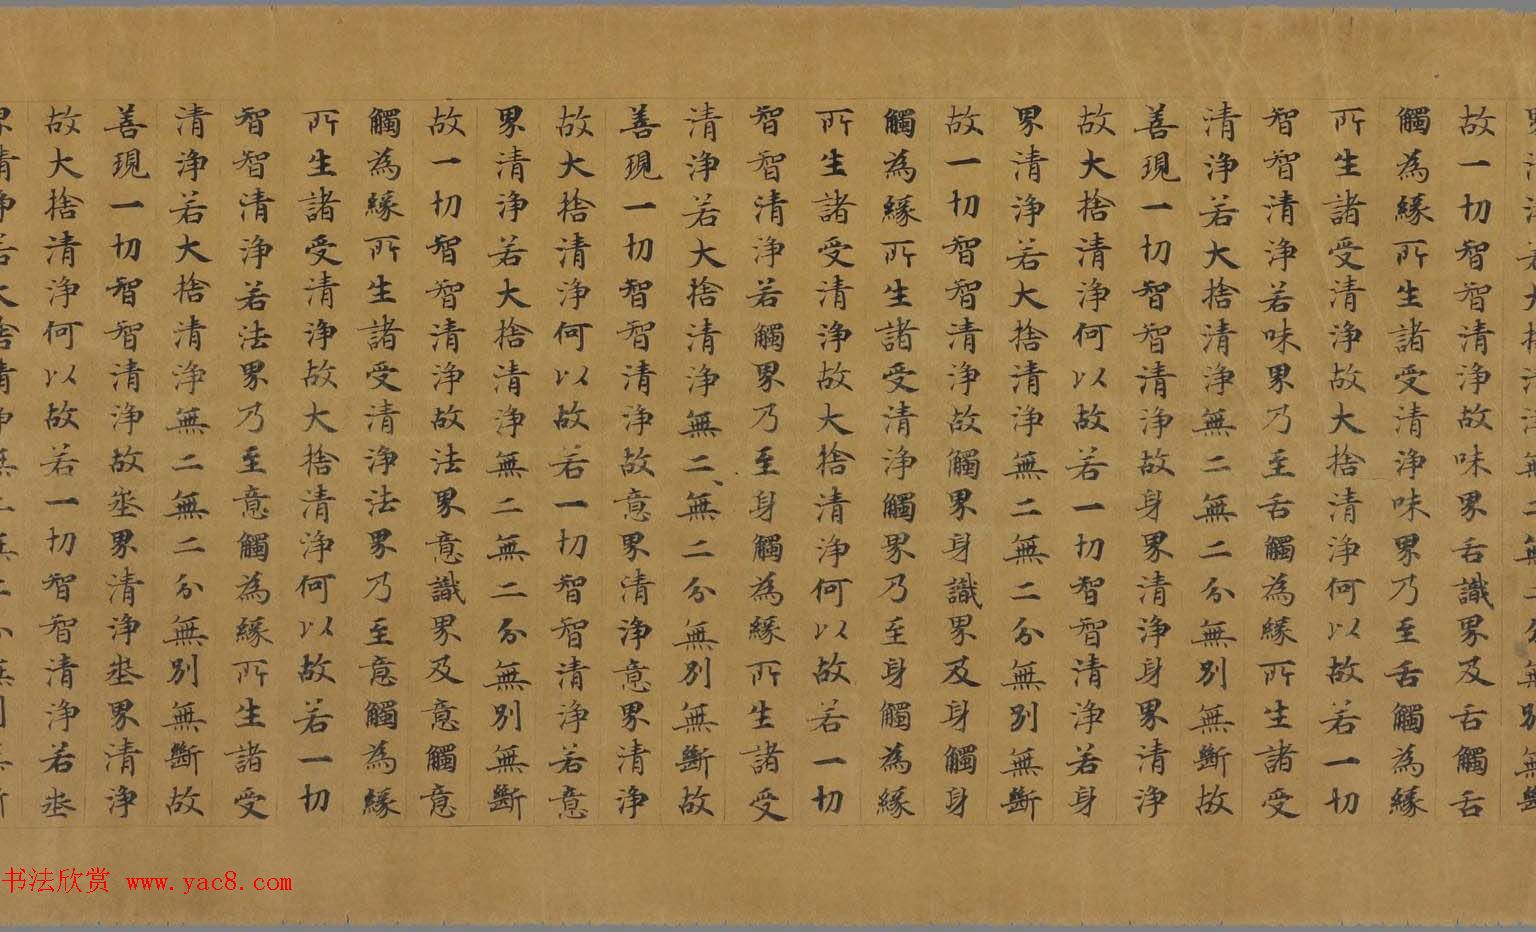 界清淨若大捨清淨無二無二分無別無斷
故一切智智清淨故味界舌識界及舌觸舌
觸為緣所生諸受清淨味界乃至舌觸為緣
所生諸受清淨故大捨清淨何以故若一切
智智清淨若味界乃至舌觸為緣所生諸受
清淨若大捨清淨無二無二分無別無斷故
善現一切智智清淨故身界清淨身界清淨
故大捨清淨何以故若一切智智清淨若身
界清淨若大捨清淨無二無二分無別無斷
故一切智智清淨故觸界身識界及身觸身
觸為緣所生諸受清淨觸界乃至身觸為緣
所生諸受清淨故大捨清淨何以故若一切
智智清淨若觸界乃至身觸為緣所生諸受
清淨若大捨清淨無二無二分無別無斷故
善現一切智智清淨故意界清淨意界清淨
故大捨清淨何以故若一切智智清淨若意
界清淨若大捨清淨無二無二分無別無斷
故一切智智清淨故法界意識界及意觸意
觸為緣所生諸受清淨法界乃至意觸為緣
所生諸受清淨故大捨清淨何以故若一切
智智清淨若法界乃至意觸為緣所生諸受
清淨若大捨清淨無二無二分無別無斷故
善現一切智智清淨故埊界清淨埊界清淨
故大捨清淨何以故若一切智智清淨若埊
界清淨若大捨清淨無二無二分無別無斷
书法欣赏 www.yac8.com